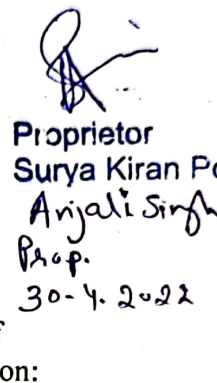 Proprietor
Surya Kiran Po
Anjali Singh
Prop.
30-4.2022
on: